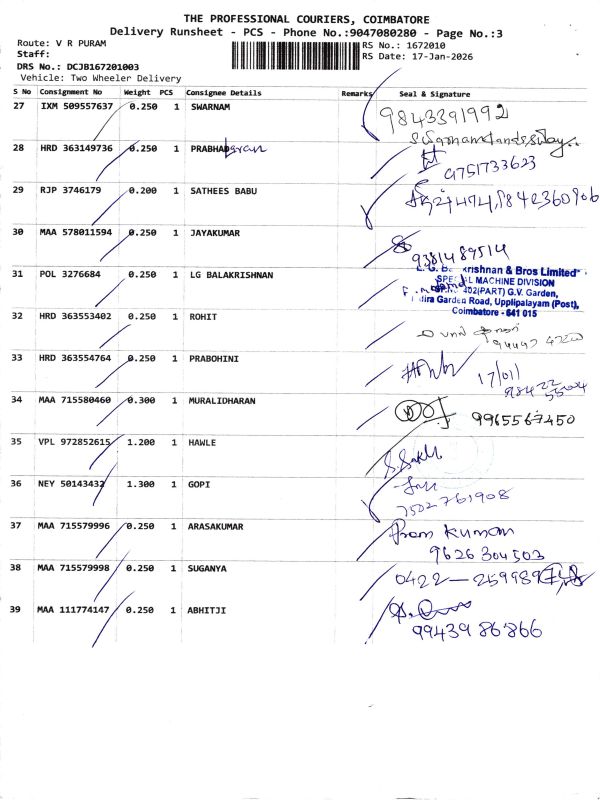 THE PROFESSIONAL COURIERS, COIMBATORE
Delivery Runsheet - PCS - Phone No.:9047080280 - Page No.:3
Route: V R PURAM
RS No.: 1672010
Staff:
RS Date: 17-Jan-2026
DRS No.: DCJB167201003
Vehicle: Two Wheeler Delivery
S No Consignment No Weight PCS Consignee Details Remarks Seal & Signature
27 IXM 509557637 0.250 1 SWARNAM
9843391992
28 HRD 363149736 0.250 1 PRABHA
9751733623
29 RJP 3746179 0.200 1 SATHEES BABU
9842360906
30 MAA 578011594 0.250 1 JAYAKUMAR
9381489514
31 POL 3276684 0.250 1 LG BALAKRISHNAN
krishnan & Bros Limited
MACHINE DIVISION
402(PART) G.V. Garden,
Garden Road, Upplipalayam (Post),
Coimbatore - 641 015
32 HRD 363553402 0.250 1 ROHIT
33 HRD 363554764 0.250 1 PRABOHINI
17/01
34 MAA 715580460 0.300 1 MURALIDHARAN
9965567450
35 VPL 972852615 1.200 1 HAWLE
36 NEY 50143432 1.300 1 GOPI
7502761908
37 MAA 715579996 0.250 1 ARASAKUMAR
Prem Kumar
9626304503
38 MAA 715579998 0.250 1 SUGANYA
0422-
39 MAA 111774147 0.250 1 ABHITJI
9943986866